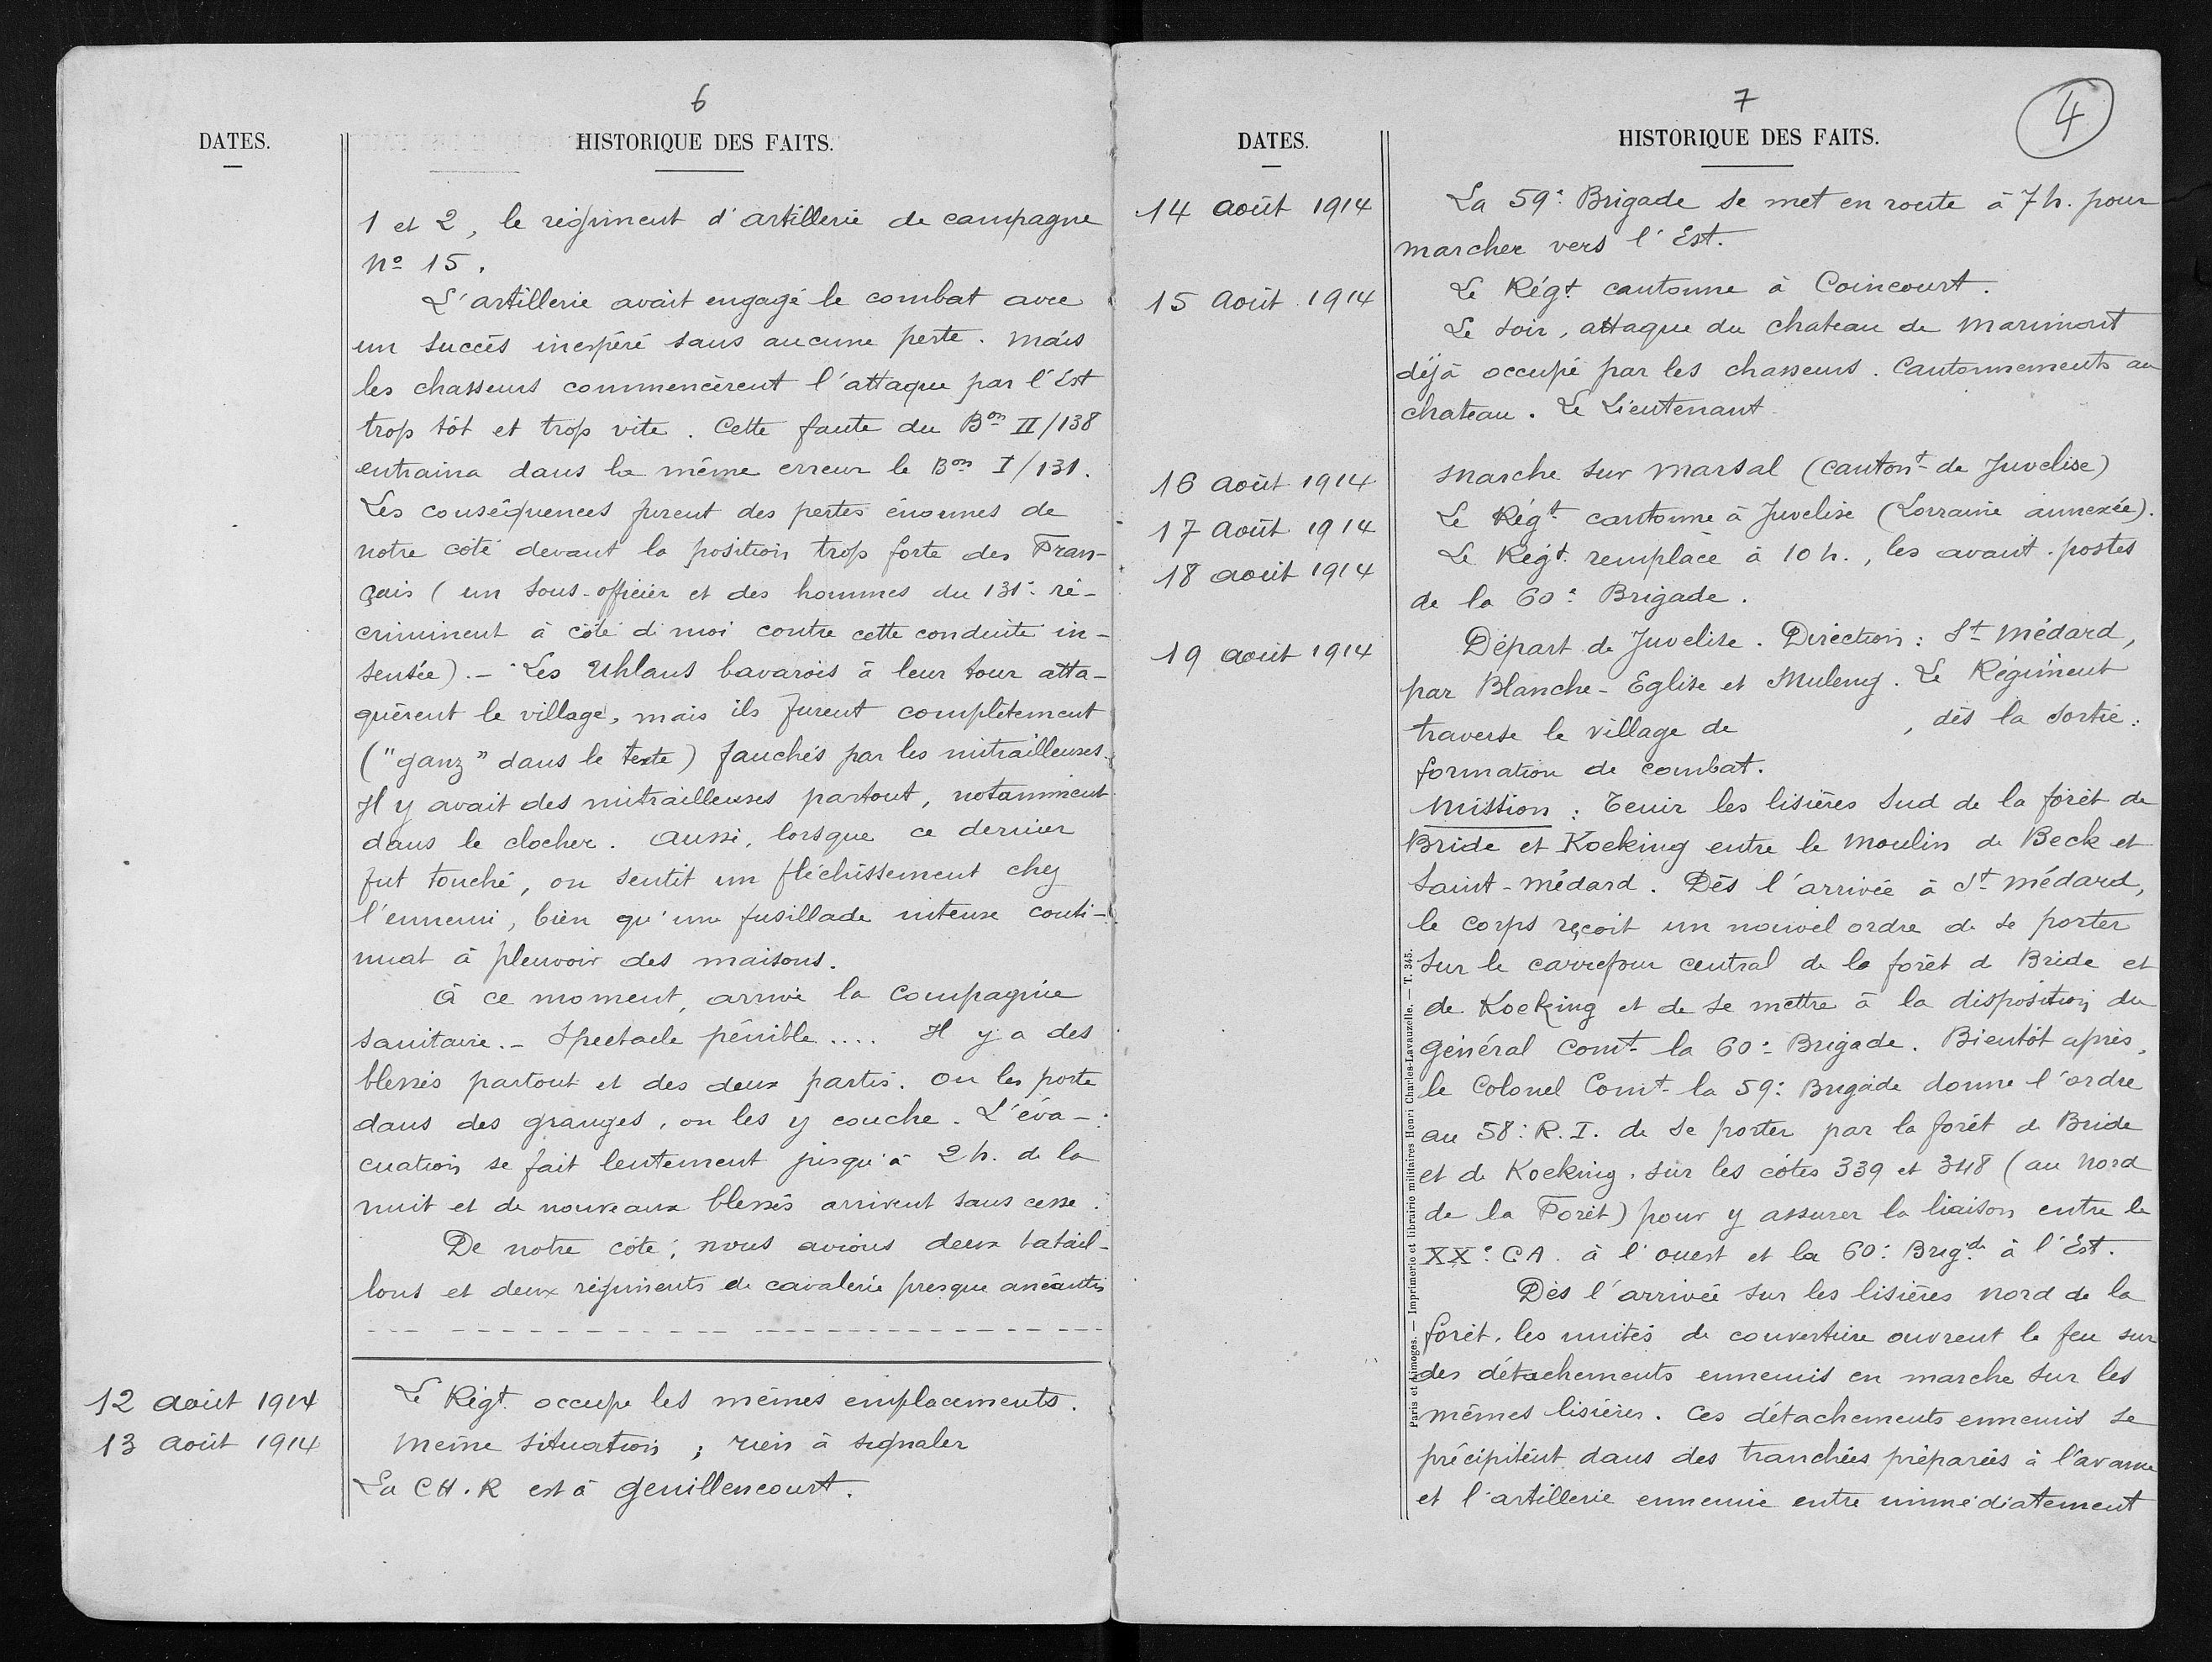 6
DATES.
HISTORIQUE DES FAITS.
1 et 2, le régiment d'artillerie de campagne
No 15.
L'artillerie avait engagé le combat avec
un succès inespéré sans aucune perte. Mais
les chasseurs commencèrent l'attaque par l'Est
trop tôt et trop vite. Cette faute du Bon II/138
entraina dans la même erreur le Bon I/131.
Les conséquences furent des pertes énormes de
notre côté devant la position trop forte des Fran-
çais (un sous-officier et des hommes du 131e ré-
criminent à côté d moi contre cette conduite in-
sensée).- Les Uhlans bavarois à leur tour atta-
quèrent le village, mais ils furent complètement
("ganz" dans le texte) fauchés par les mitrailleuses.
Il y avait des mitrailleuses partout, notamment
dans le clocher. Aussi, lorsque ce dernier
fut touché, on sentit un fléchissement chez
l'ennemi, bien qu'une fusillade intense conti-
nuat à pleuvoir des maisons.
A ce moment, arrive la Compagnie
sanitaire.- Spectacle pénible .... Il y a des
blessés partout et des deux partis. On les porte
dans des granges, on les y couche. L'éva-
cuation se fait lentement jusqu'à 2h. de la
nuit et de nouveaux blessés arrivent sans cesse.
De notre côté, nous avions deux batail-
lons et deux régiments de cavalerie presque anéantis
12 août 1914 Le Régt. occupe les mêmes emplacements.
13 août 1914 Même situation; rien à signaler
La CH.R est à Genillencourt.
7
4
DATES.
HISTORIQUE DES FAITS.
14 août 1914 La 59e Brigade se met en route à 7h. pour
marcher vers l'Est.
15 Août 1914 Le Régt cantonne à Coincourt.
Le soir, attaque du chateau de Marimont
déjà occupé par les chasseurs. Cantonnements au
chateau. Le Lieutenant
16 août 1914 Marche sur Marsal (cantont de Juvelise)
17 Août 1914 Le Régt cantonne à Juvelise (Lorraine annexée).
18 août 1914 Le Régt. remplace à 10h., les avant-postes
de la 60e Brigade.
19 août 1914 Départ de Juvelise. Direction: St Médard,
par Blanche-Eglise et Muleny. Le Régiment
traverse le village de , dès la sortie:
formation de combat.
Mission: Tenir les lisières Sud de la forêt de
Bride et Koeking entre le Moulin de Beck et
Saint-Médard. Dès l'arrivée à St Médard,
le corps reçoit un nouvel ordre de se porter
sur le carrefour central de la forêt d Bride et
de Koeking et de se mettre à la disposition du
Général Comt la 60e Brigade. Bientôt après,
le Colonel Comt la 59e Brigade donne l'ordre
au 58e R.I. de se porter par la forêt de Bride
et de Koeking, sur les côtes 339 et 348 (au Nord
de la Forêt) pour y assurer la liaison entre le
XXe CA. à l'ouest et la 60e Brigde à l'Est.
Dès l'arrivée sur les lisières Nord de la
forêt, les unités de couverture ouvrent le feu sur
des détachements ennemis en marche sur les
mêmes lisières. Ces détachements ennemis se
précipitent dans des tranchées préparées à l'avance
et l'artillerie ennemie entre immédiatement
Paris et Limoges. — Imprimerie et librairie militaires Henri Charles-Lavauzelle. — T. 345.